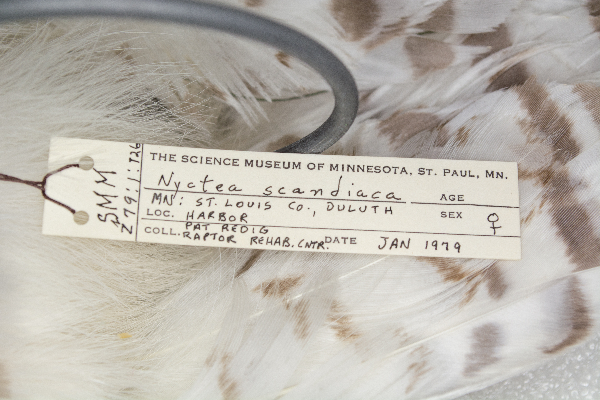 SMM
Z79:1:126
THE SCIENCE MUSEUM OF MINNESOTA, ST. PAUL, MN.
Nyctea scandiaca AGE
MN: ST. LOUIS CO., DULUTH SEX ♀
LOC. HARBOR
COLL. PAT REDIG
RAPTOR REHAB. CNTR. DATE JAN 1979